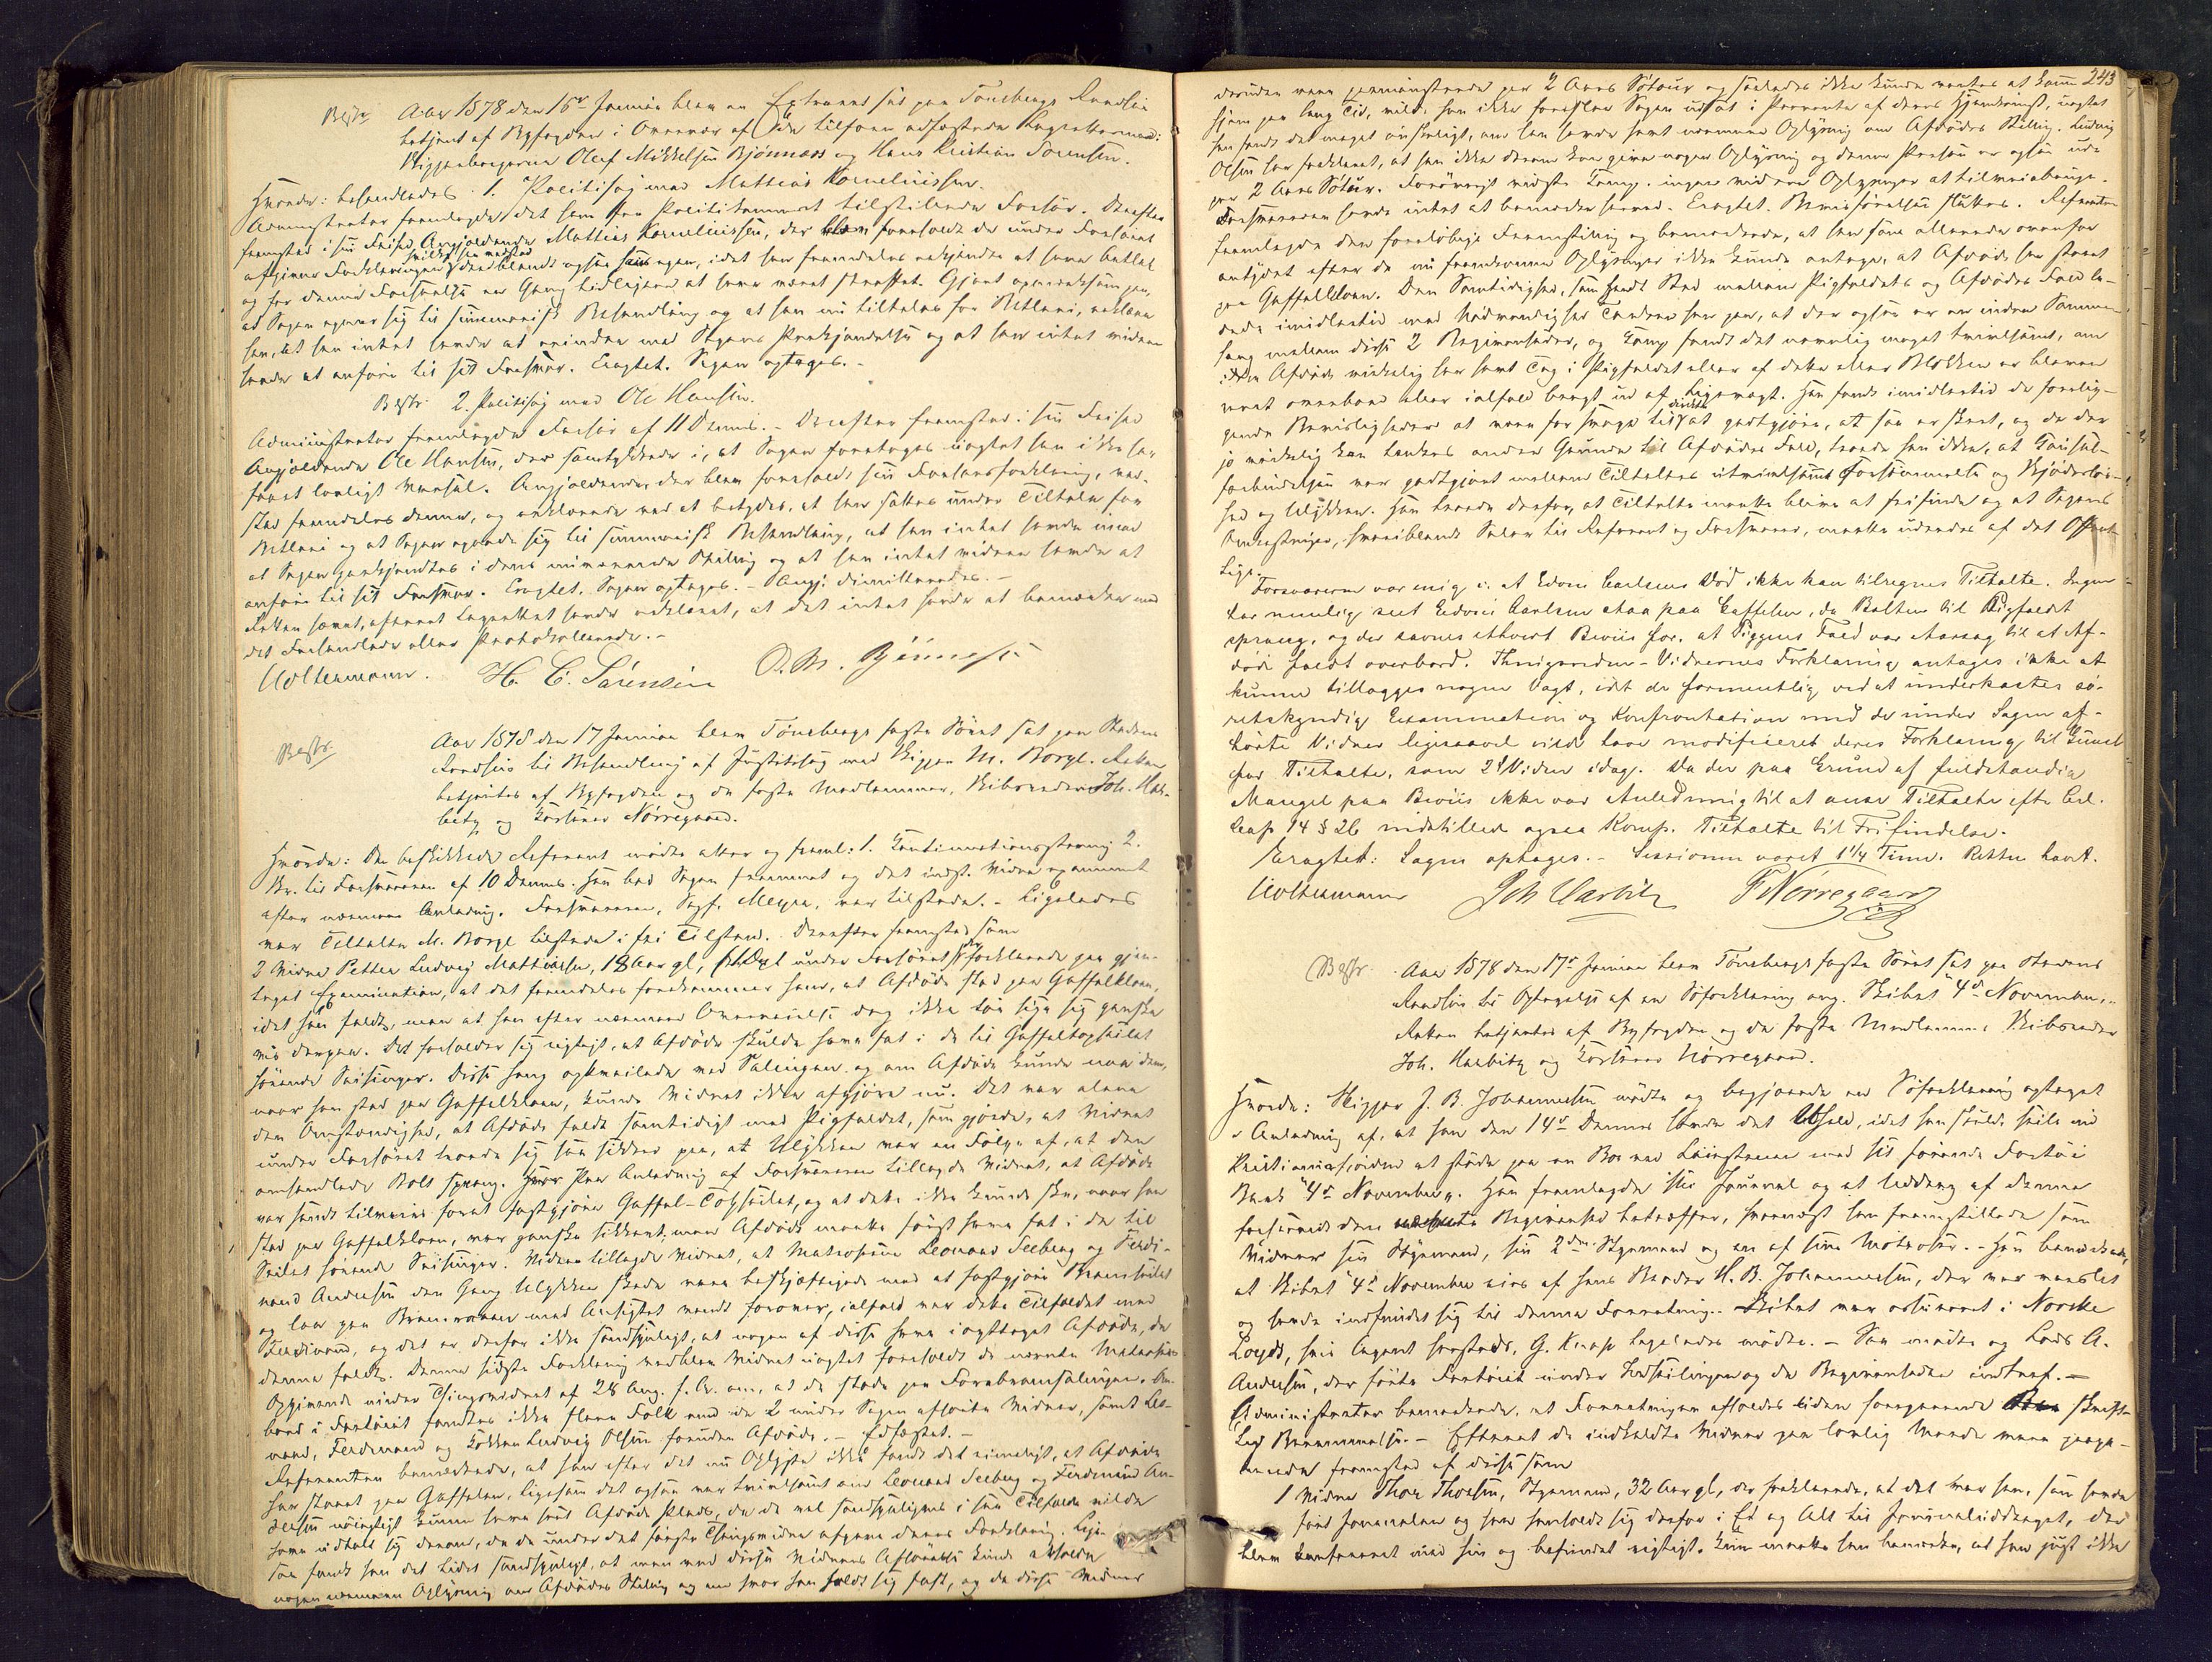 Bestr. Aar 1878 den 15de Januar blev en Extraret sat paa Tønsbergs Raadhus
betjent af Byfogden i Overvær af de tilforn edfæstede Lagrettesmænd:
Skyggenborgerne Oluf Mikkelsen Bjønness og Hans Kristian Sørensen.
Hvorda: behandledes 1. Politisag mod Mattias Korneliussen.
Administrator fremlagde det ham fra Politikammeret tilstillede Forhør. Derefter
fremstod i sin Frihed Angjældende Mattias Korneliussen, der blev foreholdt de under Forhøret
afgivne Forklaringer, hvilke han vedstod deriblandt ogsaa sin egen, idet han fremdeles erkjendte at have betlet
og for denne Forseelse en Gang tidligere at have været straffet. Gjort opmærksom paa,
at Sagen egner sig til summarisk Behandling og at han nu tiltales for Betleri, erklærer
han, at han intet havde at erindre mod Sagens Paakjendelse og at han intet videre
havde at anføre til sit Forsvar. Eragtet. Sagen optages. -
Bestr. 2. Politisag mod Ole Hansen.
Administrator fremlagde Forhør af 11 Dennes. - Derefter fremstod i sin Frihed
Angjældende Ole Hansen, der samtykkede i, at Sagen foretoges uagtet han ikke havde
faaet lovligt Varsel. Angjældende, der blev foreholdt sin Forhørsforklaring, ved-
stod fremdeles denne, og erklærede ved at betydes, at han sattes under Tiltale for
Betleri og at Sagen egnede sig til summarisk Behandling, at han intet havde imod
at Sagen paakjendtes i dens nuværende Stilling og at han intet videre havde at
anføre til sit Forsvar. Eragtet. Sagen optages. - Angj. dimitteredes. -
Retten hævet, efterat Lagrettet havde erklæret, at det intet havde at bemærke ved
det Forhandlede eller Protokollerede. -
Woltermann. H. C. Sørensen O. M. Bjønness
Bestr. Aar 1878 den 17 Januar blev Tønsbergs faste Søret sat paa Stadens
Raadhus til Behandling af Justitssag mod Skipper M. Borge. Retten
betjentes af Byfogden og de faste Medlemmer, Skibsreder Joh. Har-
bitz og Kaptein Nørregaard.
Hvorda: Den beskikkede Referent mødte atter og freml: 1. Kontinuationsstevning 2.
Br. til Forsvareren af 10 Dennes. Han bad Sagen fremmet og det indst. Vidne examineret
efter nærmere Anledning. Forsvareren, Sagf. Meyer, var tilstede. - Ligeledes
var Tiltalte M. Borge tilstede i fri Tilstand. Derefter fremstod som
2 Vidne Petter Ludvig Mattiassen, 18 Aar gl, under Forhøret der forklarede paa gjen-
taget Examination, at det fremdeles forekommer ham, at Afdøde stod paa Gaffelkloen,
idet han faldt, men at han efter nærmere Overveielse dog ikke tør sige sig ganske
vis derpaa. Det forholder sig rigtigt, at Afdøde skulde have fat i de til Gaffeltopseilet
hørende Seisinger. Disse hang opkveilede ved Salingen og om Afdøde kunde naa dem,
naar han stod paa Gaffelkloen, kunde Vidnet ikke afgjøre nu. Det var alene
den Omstændighed, at Afdøde faldt samtidigt med Pigfaldet, som gjorde, at Vidnet
under Forhøret troede sig saa sikker paa, at Ulykken var en Følge af, at den
omhandlede Bolt sprang. Paa Anledning af Forsvareren tillagde Vidnet, at Afdøde
var sendt tilveirs forat fastgjøre Gaffel-Topseilet, og at dette ikke kunde ske, naar han
stod paa Gaffelkloen, var ganske sikkert, men Afdøde maatte først have fat i de til
Seilet hørende Seisinger. Videre tillagde Vidnet, at Matroserne Leonard Seeberg og Ferdi-
nand Andersen den Gang Ulykken skede vare beskjæftigede med at fastgjøre Bramseilet
og laa paa Bramraaen med Ansigtet vendt forover, ialfald var dette Tilfældet med
Ferdinand, og det er derfor ikke sandsynligt, at nogen af disse have iagttaget Afdøde, da
denne faldt. Denne sidste Forklaring vedblev Vidnet uagtet foreholdt de nævnte Matrosers
Opgivende under Thingsvidnet af 28 Aug. f. A. om, at de stode paa Forebramsalingen. Om-
bord i Fartøiet fandtes ikke flere Folk end de 2 under Sagen afhørte Vidner, samt Leo-
nard, Ferdinand og Kokken Ludvig Olsen foruden Afdøde. - Edfæstet. -
Referenten bemærkede, at han efter det nu Oplyste ikke fandt det rimeligt, at Afdøde
har staaet paa Gaffelen, ligesom det ogsaa var tvivlsomt om Leonard Seeberg og Ferdinand An-
dersen nøiagtigt kunne have seet Afdødes Plads, da de vel sandsynligvis i saa Tilfælde vilde
have udtalt sig derom, da de under det første Thingsvidne afgave deres Forklaring. Lige-
saa fandt han det lidet sandsynligt, at man ved disse Vidners Afhørelse kunde erholde
nogen nærmere Oplysning om Afdødes Stilling og om hvor han holdt sig fast, og da disse Vidner
243
desuden vare paamønstrede paa 2 Aars Søtour og saaledes ikke kunde ventes at komme
hjem paa lang Tid, vilde han ikke foreslaa Sagen udsat i Paavente af deres Hjemkomst, uagtet
han fandt det meget ønskeligt, om han havde havt nærmere Oplysning om Afdødes Stilling. Ludvig
Olsen har forklaret, at han ikke derom kan give nogen Oplysning og denne Person er ogsaa ude
paa 2 Aars Søtour. Forøvrigt vidste Komp. ingen videre Oplysninger at tilveiebringe.
Forsvareren havde intet at bemærke herved. Eragtet. Bevisførelsen sluttes. Referenten
fremlagde den foreløbige Fremstilling og bemærkede, at han som allerede ovenfor
antydet efter de nu fremkomne Oplysninger ikke kunde antage, at Afdøde har staaet
paa Gaffelkloen. Den Samtidighed, som fandt Sted mellem Pigfaldets og Afdødes Fald le-
dede imidlertid med Nødvendighed Tanken hen paa, at der ogsaa er en indre Sammen-
hæng mellem disse 2 Begivenheder, og Komp. fandt det nemlig meget tvivlsomt, om
ikke Afdøde virkelig har havt Tag i Pigfaldet eller af dette eller Blokken er bleven
revet overbord eller ialfald bragt ud af Ligevægt. Han fandt imidlertid de forelig-
gende Bevisligheder at være for svage til direkte at godtgjøre, at saa er skeet, og da der
jo mulig kan tænkes andre Grunde til Afdødes Fald, troede han ikke, at Kausal-
forbindelsen var godtgjort mellem Tiltaltes utvivlsomt Forsømmelse og Skjødesløs-
hed og Ulykken. Han troede derfor, at Tiltalte maatte blive at frifinde og at Sagens
Omkostninger, hvoriblandt Salær til Referent og Forsvarer, maatte udredes af det Offent-
lige.
Forsvareren var enig i, at Edvin Carlsens Død ikke kan tilregnes Tiltalte. Ingen
har nemlig seet Edvin Carlsen staa paa Gaffelen, da Bolten til Pigfaldet
sprang, og der savnes ethvert Beviis for, at Piggens Fald var Aarsag til at Af-
døde faldt overbord. Thingsvidne-Vidnernes Forklaring antages ikke at
kunne tillægges nogen Vagt, idet de formentlig ved at underkastes sø-
retskyndig Examination og Konfrontation med de under Sagen af-
hørte Vidner ligesaavel vilde have modificeret deres Forklaring til Gunst
for Tiltalte, som 2det Vidne idag. Da der paa Grund af fuldstændig
Mangel paa Beviis ikke var Anledning til at anse Tiltalte efter Crl.
Cap 14 § 26 indstillede ogsaa Komp. Tiltalte til Frifindelse.
Eragtet: Sagen optages. - Sessionen varet 1 1/4 Time. Retten hævet.
Woltermann Joh Harbitz F Nørregaard
Bestr. Aar 1878 den 17de Januar blev Tønsbergs faste Søret sat paa Stadens
Raadhus til Optagelse af en Søforklaring ang. Skibet "4de November".
Retten betjentes af Byfogden og de faste Medlemmer Skibsreder
Joh. Harbitz og Kaptein Nørregaard.
Hvorda: Skipper J. B. Johannesen mødte og begjærede en Søforklaring optaget
i Anledning af, at han den 14de Dennes havde det Uheld, idet han skulde seile ind
Kristianiafjorden at støde paa en Boe ved Leinstrand med sit førende Fartøi
Bark "4de November". Han fremlagde sin Journal og et Uddrag af denne
forsaavidt den Begivenhed betræffer, hvornæst han fremstillede som
Vidner sin Styrmand, sin 2den Styrmand og en af sine Matroser. - Han bemærkede,
at Skibet "4de November" eies af hans Broder H. B. Johannesen, der var varslet
og havde indfundet sig til denne Forretning. Skibet var assureret i Norske
Loyds, hvis Agent hersteds, G. Knap ligeledes mødte. - Saa mødte og Lods A.
Andersen, der førte Fartøiet under Indseilingen og da Begivenheden indtraf. -
Administrator bemærkede, at Forretningen afholdes uden foregaaende skrift-
lig Berammelse. - Efterat de indkaldte Vidner paa lovlig Maade vare paaraa-
bte fremstod af disse som
1 Vidne Thor Thorsen, Styrmand, 32 Aar gl, der forklarede, at det var ham, som havde
ført Journalen og han henholdt sig derfor i Et og Alt til Journaluddraget, der
blev konfereret med hin og befundet rigtigt. Kun maatte han bemærke, at han just ikke